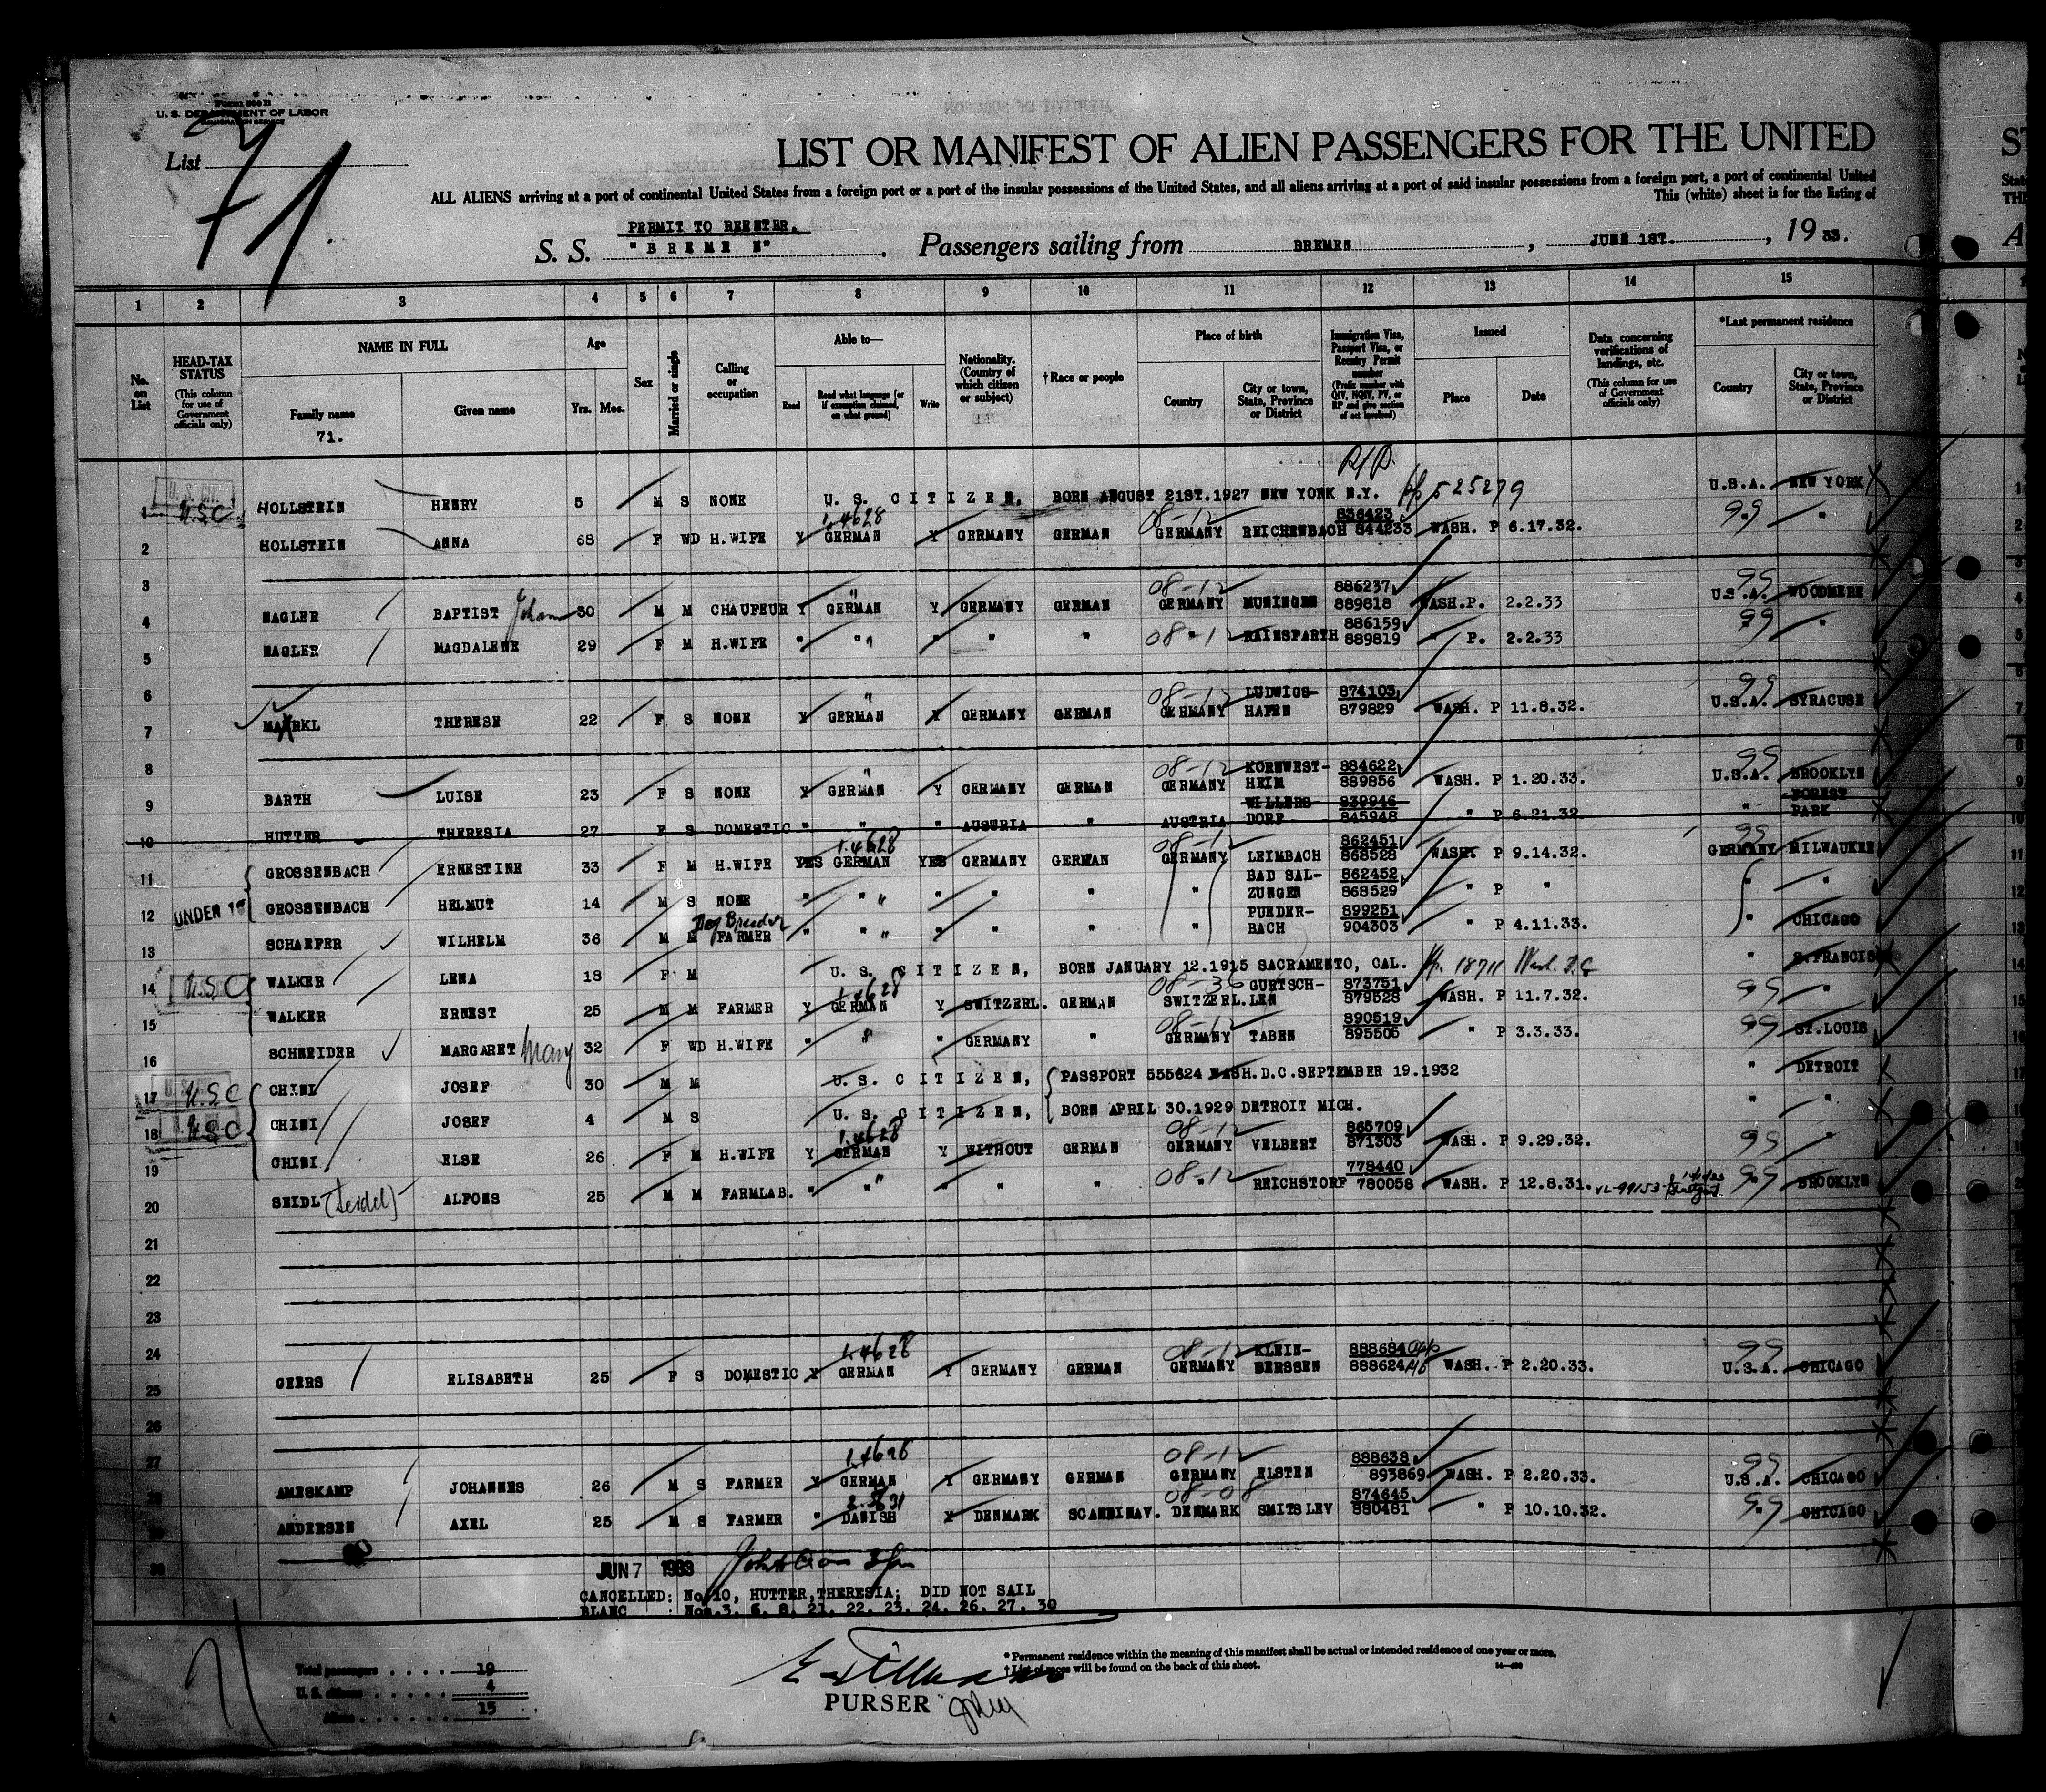 Form 500 B
U. S. DEPARTMENT OF LABOR
IMMIGRATION SERVICE
List 71
LIST OR MANIFEST OF ALIEN PASSENGERS FOR THE UNITED
ALL ALIENS arriving at a port of continental United States from a foreign port or a port of the insular possessions of the United States, and all aliens arriving at a port of said insular possessions from a foreign port, a port of continental United
This (white) sheet is for the listing of
PERMIT TO REENTER.
S. S. "BREMEN". Passengers sailing from BREMEN, JUNE 1ST., 1933.
1 2 3 4 5 6 7 8 9 10 11 12 13 14 15
No. on List
HEAD-TAX STATUS (This column for use of Government officials only)
NAME IN FULL Family name Given name
71.
Age Yrs. Mos.
Sex
Married or single
Calling or occupation
Able to— Read Read what language [or if exemption claimed, on what ground] Write
Nationality. (Country of which citizen or subject)
†Race or people
Place of birth Country City or town, State, Province or District
Immigration Visa, Passport Visa, or Reentry Permit number (Prefix number with QIV, NQIV, PV, or RP and give section of act involved)
Issued Place Date
Data concerning verifications of landings, etc. (This column for use of Government officials only)
*Last permanent residence Country City or town, State, Province or District
1 U.S.C. HOLLSTEIN HENRY 5 M S NONE U. S. CITIZEN, BORN AUGUST 21ST.1927 NEW YORK N.Y. 525279 U.S.A. NEW YORK
1.4628 08-12 836423 99
2 HOLLSTEIN ANNA 68 F WD H.WIFE Y GERMAN Y GERMANY GERMAN GERMANY REICHENBACH 844233 WASH. P 6.17.32. "
3
08-12 886237 99
4 NAGLER BAPTIST Johann 30 M M CHAUFEUR Y GERMAN Y GERMANY GERMAN GERMANY MUNINGEN 889818 WASH.P. 2.2.33 U.S.A. WOODMERE
886159 99
5 NAGLER MAGDALENE 29 F M H.WIFE " " " " " 08-12 HAINSFARTH 889819 " P. 2.2.33 "
6 08-12 LUDWIGS- 874103 99
7 MAXRKL THERESE 22 F S NONE Y GERMAN Y GERMANY GERMAN GERMANY HAFEN 879829 WASH. P 11.8.32. U.S.A. SYRACUSE
8 08-12 KORNWEST- 884622 99
9 BARTH LUISE 23 F S NONE Y GERMAN Y GERMANY GERMAN GERMANY HEIM 889856 WASH. P 1.20.33. U.S.A. BROOKLYN
WILLERS- 839946 FOREST
10 HUTTER THERESIA 27 F S DOMESTIC " " " AUSTRIA " AUSTRIA DORF 845948 " P 6.21.32. " PARK
1.4628 08-12 862451 99
11 GROSSENBACH ERNESTINE 33 F M H.WIFE YES GERMAN YES GERMANY GERMAN GERMANY LEIMBACH 868528 WASH. P 9.14.32. GERMANY MILWAUKEE
BAD SAL- 862452
12 UNDER 16 GROSSENBACH HELMUT 14 M S NONE " " " " " " ZUNGEN 868529 " P " " "
Dog Breeder PUEDER- 899251
13 SCHAEFER WILHELM 36 M M FARMER " " " " " " BACH 904303 " P 4.11.33. " CHICAGO
14 U.S.C WALKER LENA 18 F M U. S. CITIZEN, BORN JANUARY 12.1915 SACRAMENTO, CAL. 18711 Wash. D.C " S.FRANCISCO
1.4628 08-36 GURTSCH- 873751 99
15 WALKER ERNEST 25 M M FARMER Y GERMAN Y SWITZERL. GERMAN SWITZERL. LEN 879528 WASH. P 11.7.32. "
08-12 890519
16 SCHNEIDER MARGARET Mary 32 F WD H.WIFE " " " GERMANY " GERMANY TABEN 895505 " P 3.3.33. 99 ST.LOUIS
17 U.S.C CHINI JOSEF 30 M M U. S. CITIZEN, PASSPORT 555624 WASH.D.C.SEPTEMBER 19.1932 " DETROIT
18 U.S.C CHINI JOSEF 4 M S U. S. CITIZEN, BORN APRIL 30.1929 DETROIT MICH. " "
1.4628 08-12 865709
19 CHINI ELSE 26 F M H.WIFE Y GERMAN Y WITHOUT GERMAN GERMANY VELBERT 871303 WASH. P 9.29.32. 99 "
778440
20 SEIDL (Seidel) ALFONS 25 M M FARMLAB. " " " " " 08-12 REICHSTORF 780058 WASH. P 12.8.31. 99 BROOKLYN
21
22
23
24 1.4628 08-12 KLEIN- 888684 99
25 GEERS ELISABETH 25 F S DOMESTIC Y GERMAN Y GERMANY GERMAN GERMANY BERSSEN 888624 WASH. P 2.20.33. U.S.A. CHICAGO
26
27 1.4628 08-12 888638 99
28 AMESKAMP JOHANNES 26 M S FARMER Y GERMAN Y GERMANY GERMAN GERMANY ELSTEN 893869 WASH. P 2.20.33. U.S.A. CHICAGO
08-08 874645
29 ANDERSEN AXEL 25 M S FARMER " DANISH Y DENMARK SCANDINAV. DENMARK SMITSLEV 880481 " P 10.10.32. 99 CHICAGO
30
JUN 7 1933
CANCELLED: No.10, HUTTER,THERESIA; DID NOT SAIL
BLANC : Nos.3, 6, 8, 21, 22, 23, 24, 26, 27, 30
* Permanent residence within the meaning of this manifest shall be actual or intended residence of one year or more.
† List of races will be found on the back of this sheet.
Total passengers 19
U. S. citizens 4
Aliens 15
PURSER